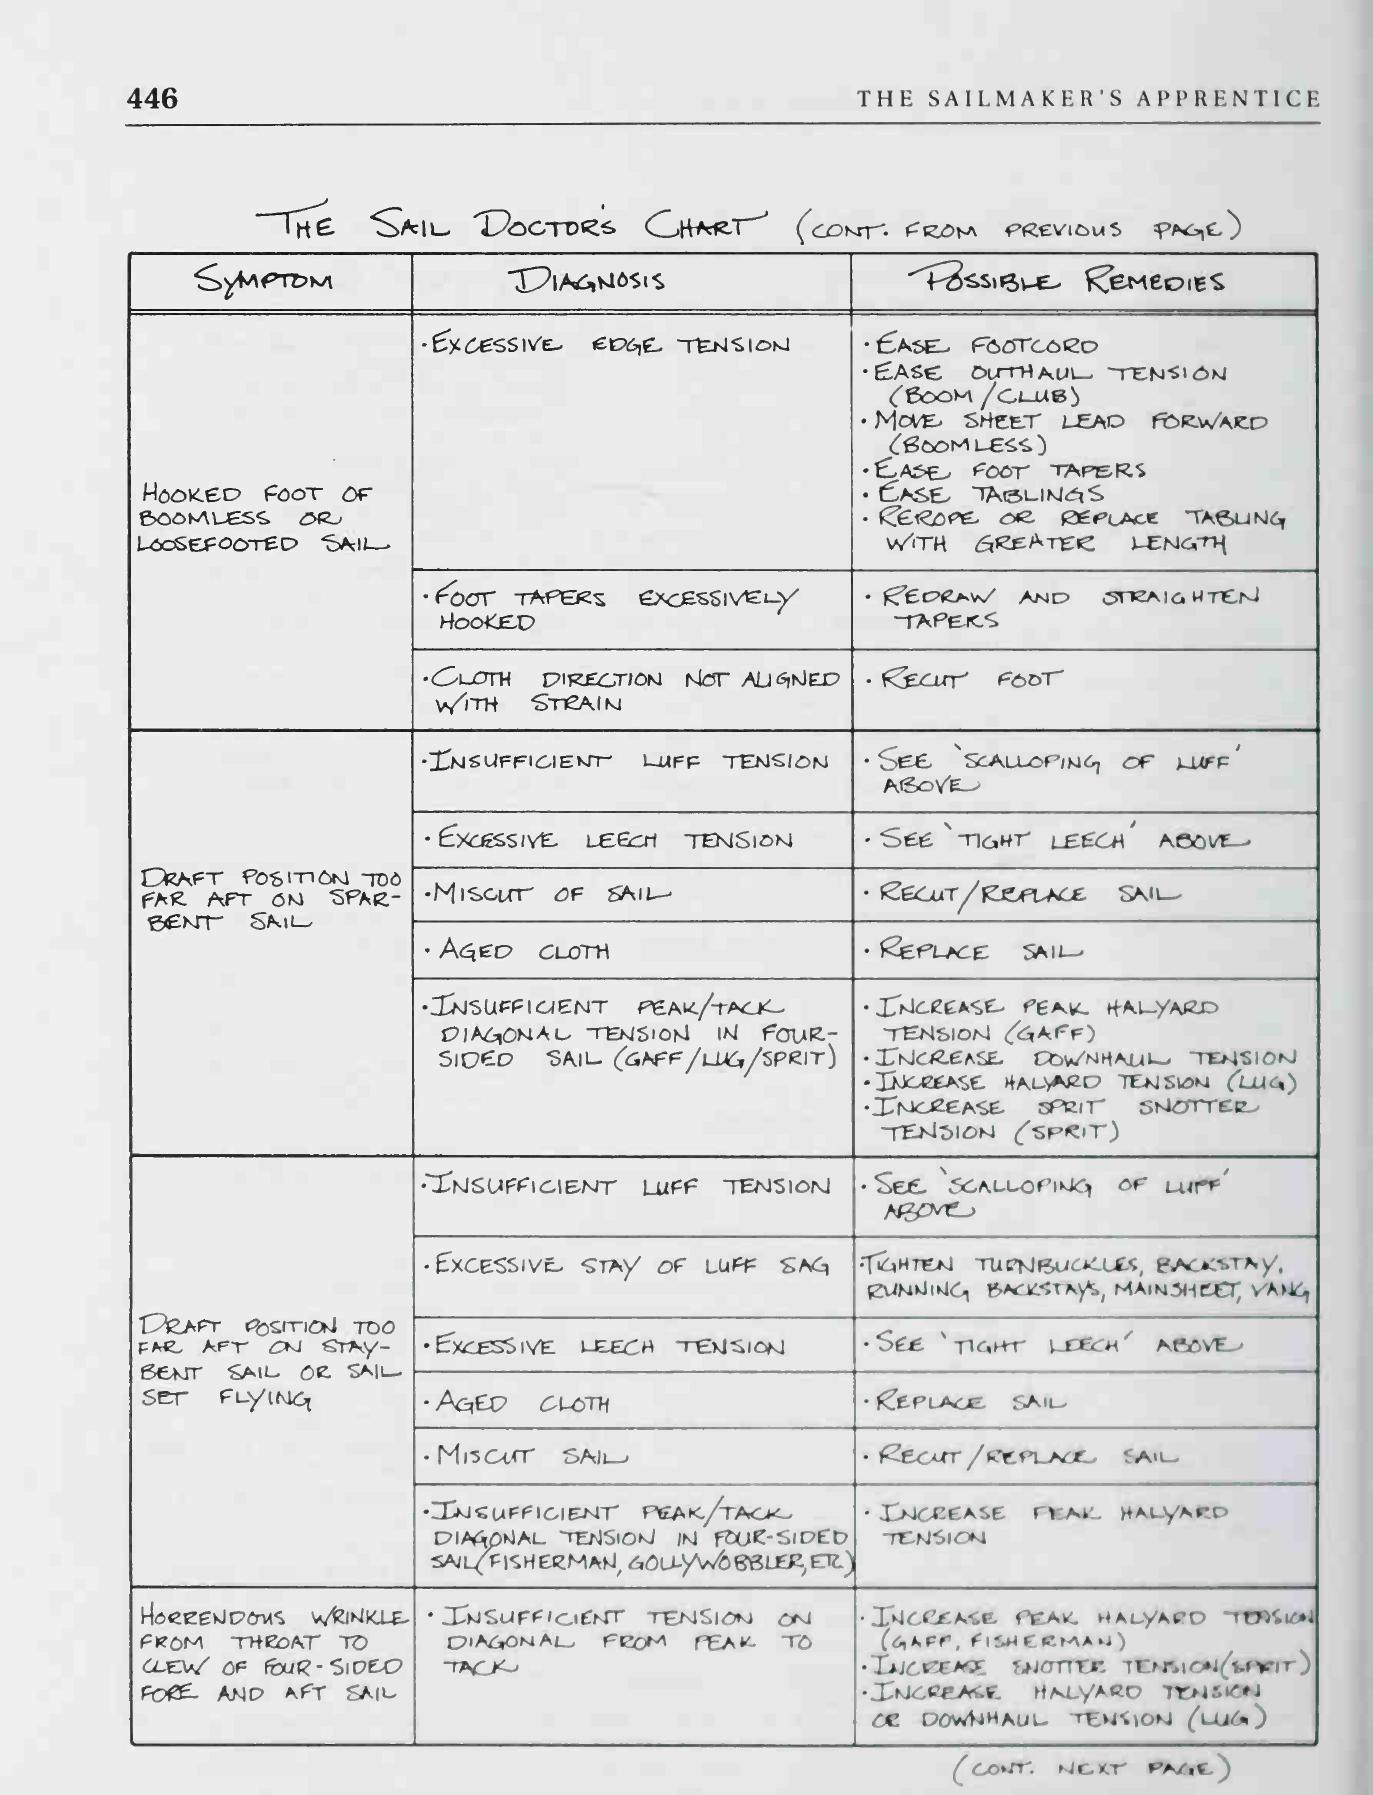 446
THE SAILMAKER'S APPRENTICE
THE SAIL DOCTOR'S CHART (CONT. FROM PREVIOUS PAGE)
SYMPTOM
DIAGNOSIS
POSSIBLE REMEDIES
HOOKED FOOT OF
BOOMLESS OR
LOOSEFOOTED SAIL
· EXCESSIVE EDGE TENSION
· EASE FOOTCORD
· EASE OUTHAUL TENSION
(BOOM/CLUB)
· MOVE SHEET LEAD FORWARD
(BOOMLESS)
· EASE FOOT TAPERS
· EASE TABLINGS
· REROPE OR REPLACE TABLING
WITH GREATER LENGTH
· FOOT TAPERS EXCESSIVELY
HOOKED
· REDRAW AND STRAIGHTEN
TAPERS
· CLOTH DIRECTION NOT ALIGNED
WITH STRAIN
· RECUT FOOT
DRAFT POSITION TOO
FAR AFT ON SPAR-
BENT SAIL
· INSUFFICIENT LUFF TENSION
· SEE 'SCALLOPING OF LUFF'
ABOVE
· EXCESSIVE LEECH TENSION
· SEE 'TIGHT LEECH' ABOVE
· MISCUT OF SAIL
· RECUT/REPLACE SAIL
· AGED CLOTH
· REPLACE SAIL
· INSUFFICIENT PEAK/TACK
DIAGONAL TENSION IN FOUR-
SIDED SAIL (GAFF/LUG/SPRIT)
· INCREASE PEAK HALYARD
TENSION (GAFF)
· INCREASE DOWNHAUL TENSION
· INCREASE HALYARD TENSION (LUG)
· INCREASE SPRIT SNOTTER
TENSION (SPRIT)
DRAFT POSITION TOO
FAR AFT ON STAY-
BENT SAIL OR SAIL
SET FLYING
· INSUFFICIENT LUFF TENSION
· SEE 'SCALLOPING OF LUFF'
ABOVE
· EXCESSIVE STAY OF LUFF SAG
· TIGHTEN TURNBUCKLES, BACKSTAY,
RUNNING BACKSTAYS, MAINSHEET, VANG
· EXCESSIVE LEECH TENSION
· SEE 'TIGHT LEECH' ABOVE
· AGED CLOTH
· REPLACE SAIL
· MISCUT SAIL
· RECUT/REPLACE SAIL
· INSUFFICIENT PEAK/TACK
DIAGONAL TENSION IN FOUR-SIDED
SAIL (FISHERMAN, GOLLYWOBBLER, ETC)
· INCREASE PEAK HALYARD
TENSION
HORRENDOUS WRINKLE
FROM THROAT TO
CLEW OF FOUR-SIDED
FORE AND AFT SAIL
· INSUFFICIENT TENSION ON
DIAGONAL FROM PEAK TO
TACK
· INCREASE PEAK HALYARD TENSION
(GAFF, FISHERMAN)
· INCREASE SNOTTER TENSION (SPRIT)
· INCREASE HALYARD TENSION
OR DOWNHAUL TENSION (LUG)
(CONT. NEXT PAGE)